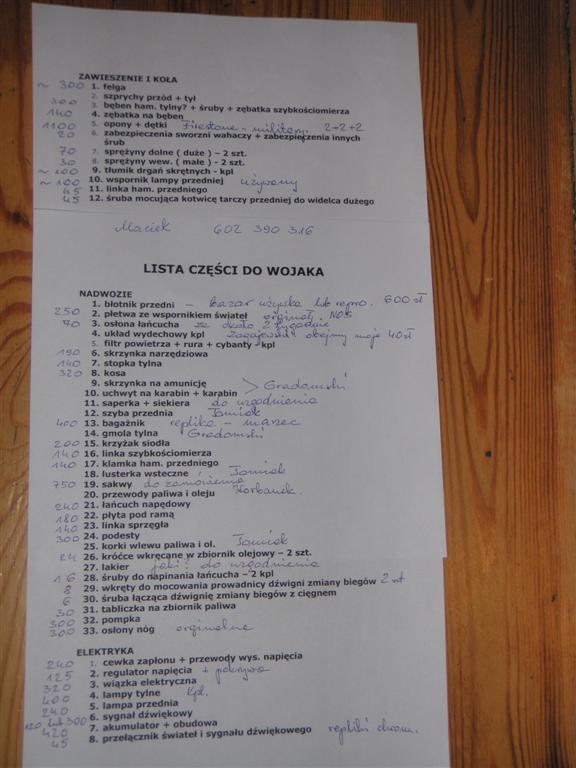 ZAWIESZENIE I KOŁA
~ 300 1. felga
2. szprychy przód + tył
300 3. bęben ham. tylny? + śruby + zębatka szybkościomierza
140 4. zębatka na bęben
1100 5. opony + dętki Firestone - military 2+2+2
20 6. zabezpieczenia sworzni wahaczy + zabezpieczenia innych
śrub
70 7. sprężyny dolne ( duże ) – 2 szt.
30 8. sprężyny wew. ( małe ) - 2 szt.
~ 100 9. tłumik drgań skrętnych - kpl
~ 100 10. wspornik lampy przedniej używany
45 11. linka ham. przedniego
45 12. śruba mocująca kotwicę tarczy przedniej do widelca dużego
Maciek 602 390 316
LISTA CZĘŚCI DO WOJAKA
NADWOZIE
1. błotnik przedni – bazar używka lub repro. 600 zł
250 2. płetwa ze wspornikiem świateł orginał. NOS
70 3. osłona łańcucha za około 2 tygodnie
4. układ wydechowy kpl obejmy moje 40 zł
5. filtr powietrza + rura + cybanty kpl
190 6. skrzynka narzędziowa
140 7. stopka tylna
320 8. kosa
9. skrzynka na amunicję
10. uchwyt na karabin + karabin > Gradomski
11. saperka + siekiera do uzgodnienia
12. szyba przednia Tomiak
400 13. bagażnik replika – marzec
14. gmola tylna Gradomski
200 15. krzyżak siodła
140 16. linka szybkościomierza
140 17. klamka ham. przedniego
18. lusterka wsteczne Tomiak
750 19. sakwy do zamówienia
20. przewody paliwa i oleju Horbanek.
240 21. łańcuch napędowy
180 22. płyta pod ramą
140 23. linka sprzęgła
300 24. podesty
25. korki wlewu paliwa i ol. Tomiak
24 26. króćce wkręcane w zbiornik olejowy – 2 szt.
27. lakier jaki? do uzgodnienia
16 28. śruby do napinania łańcucha – 2 kpl
8 29. wkręty do mocowania prowadnicy dźwigni zmiany biegów 2 szt
6 30. śruba łącząca dźwignię zmiany biegów z cięgnem
30 31. tabliczka na zbiornik paliwa
300 32. pompka
300 33. osłony nóg orginalne
ELEKTRYKA
240 1. cewka zapłonu + przewody wys. napięcia
125 2. regulator napięcia + pokrywa
320 3. wiązka elektryczna
400 4. lampy tylne kpl.
240 5. lampa przednia
120 lub 300 6. sygnał dźwiękowy
420 7. akumulator + obudowa
45 8. przełącznik świateł i sygnału dźwiękowego repliki chrom.